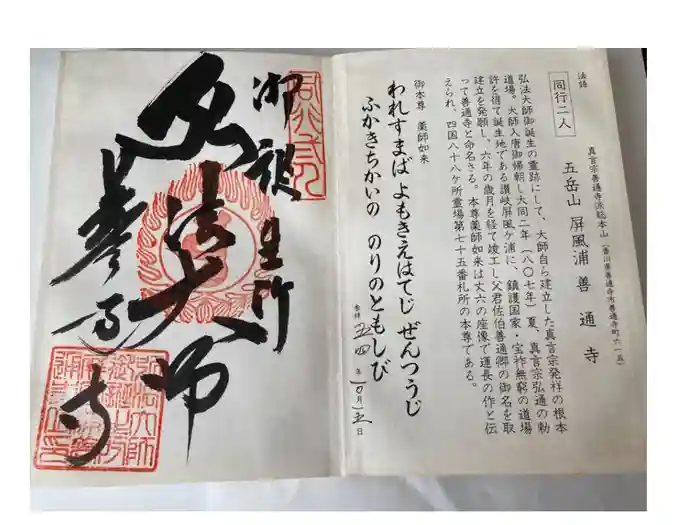 法語
同行二人
真言宗善通寺派総本山（香川県善通寺市善通寺町六一五）
五岳山 屏風浦 善通寺
弘法大師御誕生の霊跡にして、大師自ら建立した真言宗発祥の根本
道場。大師入唐御帰朝し大同二年（八〇七年）夏、真言宗弘通の勅
許を得て誕生地である讃岐屏風ケ浦に、鎮護国家・宝祚無窮の道場
建立を発願し、六年の歳月を経て竣工し父君佐伯善通卿の御名を取
って善通寺と命名さる。本尊薬師如来は丈六の座像で運長の作と伝
えられ、四国八十八ケ所霊場第七十五番札所の本尊である。
御本尊 薬師如来
われすまば よもきえはてじ ぜんつうじ
ふかきちかいの のりのともしび
参拝 五四年 10月 十五日
御誕生所
弘法大師
善通寺